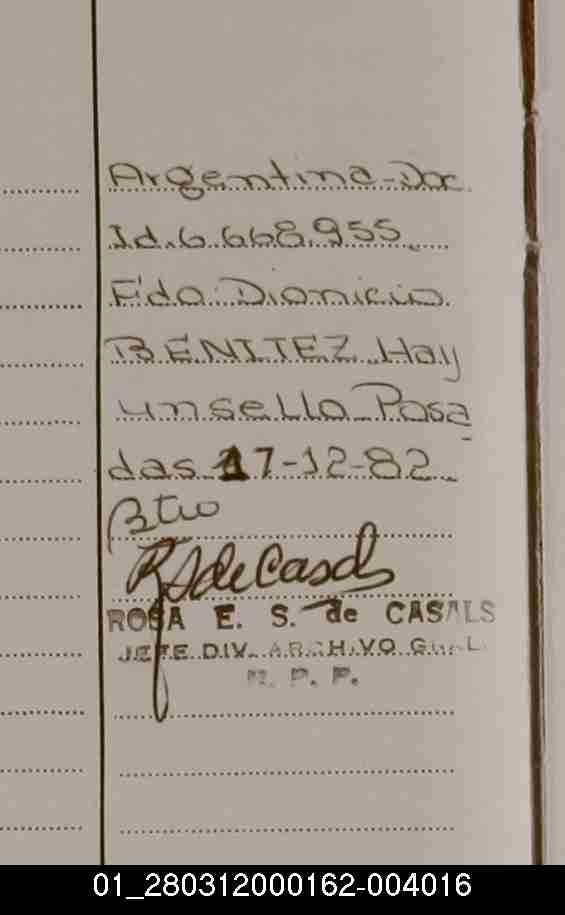 Argentina-Doc.
Id.6.668.955.
Fdo: Dionicio
BENITEZ Hay
un sello Posa
das 17-12-82.
RSdeCasals
ROSA E. S. de CASALS
JEFE DIV. ARCHIVO GRAL.
R. P. P.
01_280312000162-004016